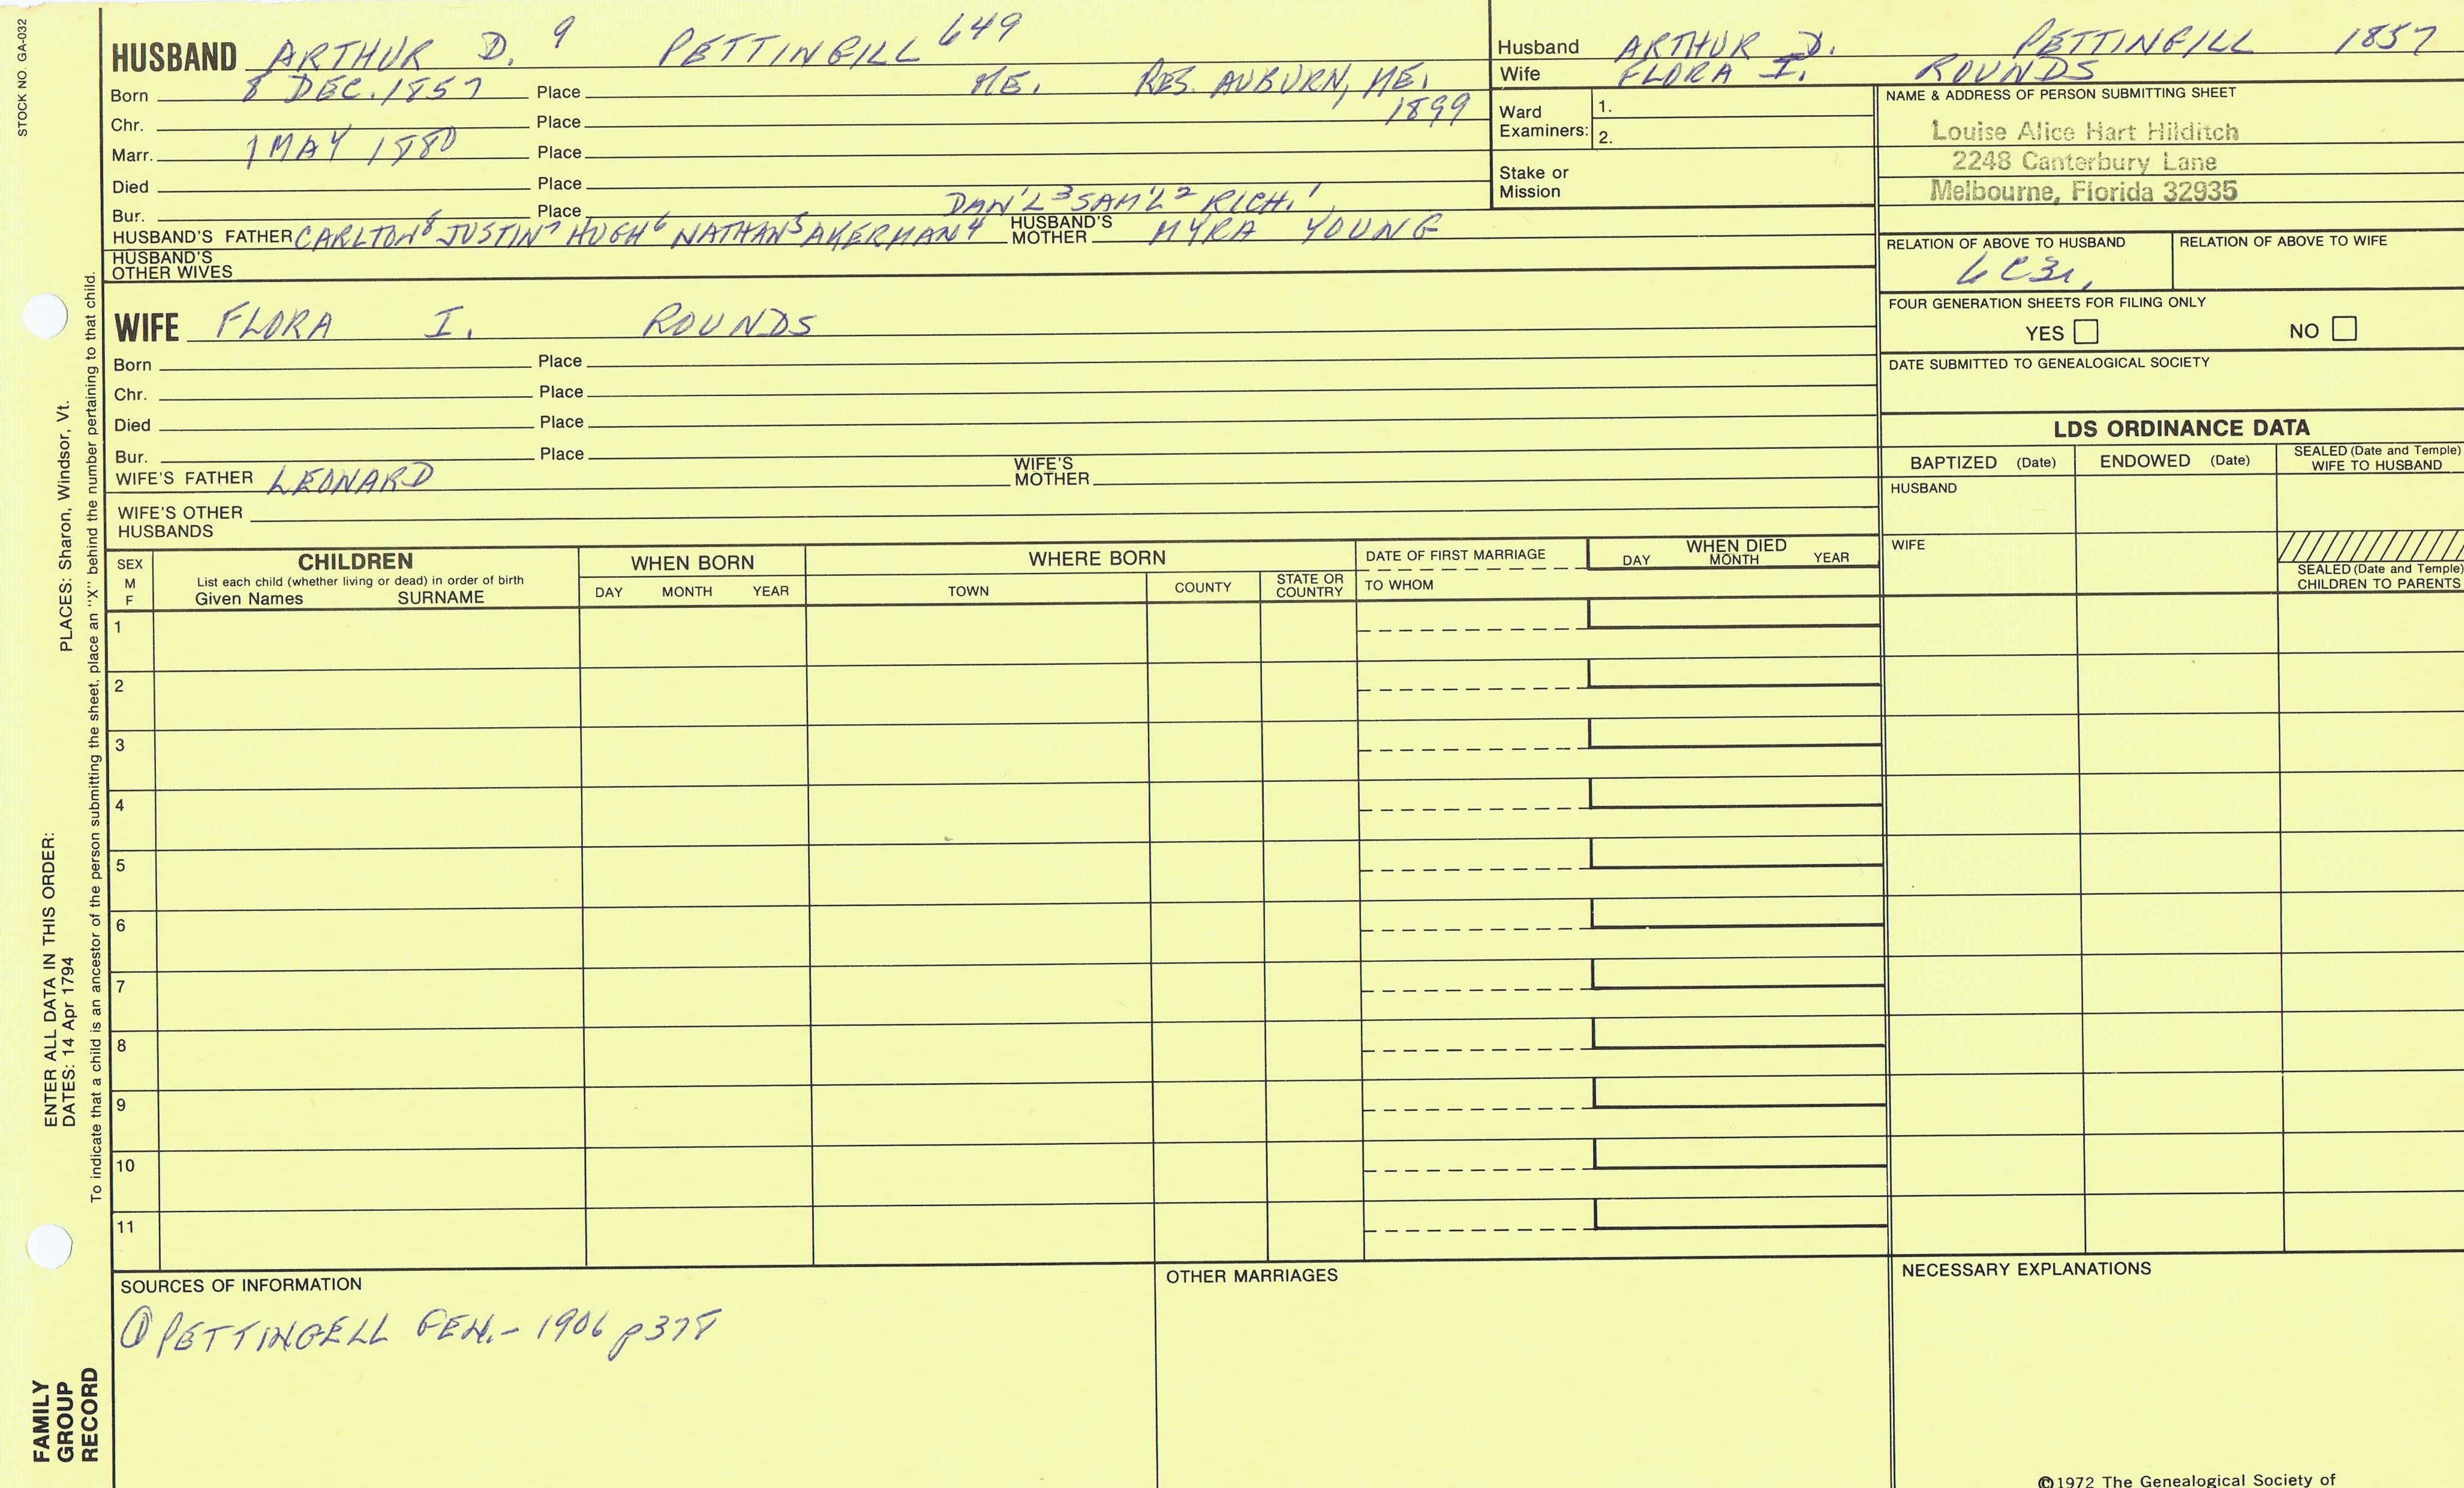 STOCK NO. GA-032
HUSBAND ARTHUR D. 9 PETTINGILL 649
Born 8 DEC. 1857 Place ME. RES. AUBURN, ME.
Chr. Place 1899
Marr. 1 MAY 1880 Place
Died Place
Bur. Place DAN'L 3 SAM'L 2 RICH. 1
HUSBAND'S FATHER CARLTON 8 JUSTIN 7 HUGH 6 NATHAN 5 AKERMAN 4 HUSBAND'S MOTHER MYRA YOUNG
HUSBAND'S OTHER WIVES
WIFE FLORA I. ROUNDS
Born Place
Chr. Place
Died Place
Bur. Place
WIFE'S FATHER LEONARD WIFE'S MOTHER
WIFE'S OTHER HUSBANDS
Husband ARTHUR D. PETTINGILL 1857
Wife FLORA I. ROUNDS
Ward Examiners: 1.
2.
Stake or Mission
NAME & ADDRESS OF PERSON SUBMITTING SHEET
Louise Alice Hart Hilditch
2248 Canterbury Lane
Melbourne, Florida 32935
RELATION OF ABOVE TO HUSBAND RELATION OF ABOVE TO WIFE
6C3r,
FOUR GENERATION SHEETS FOR FILING ONLY
YES NO
DATE SUBMITTED TO GENEALOGICAL SOCIETY
LDS ORDINANCE DATA
BAPTIZED (Date) ENDOWED (Date) SEALED (Date and Temple) WIFE TO HUSBAND
HUSBAND
WIFE
SEALED (Date and Temple) CHILDREN TO PARENTS
SEX M F
CHILDREN
List each child (whether living or dead) in order of birth
Given Names SURNAME
WHEN BORN
DAY MONTH YEAR
WHERE BORN
TOWN COUNTY STATE OR COUNTRY
DATE OF FIRST MARRIAGE
TO WHOM
WHEN DIED
DAY MONTH YEAR
1
2
3
4
5
6
7
8
9
10
11
SOURCES OF INFORMATION
① PETTINGELL GEN. - 1906 p378
OTHER MARRIAGES
NECESSARY EXPLANATIONS
©1972 The Genealogical Society of
ENTER ALL DATA IN THIS ORDER:
DATES: 14 Apr 1794 PLACES: Sharon, Windsor, Vt.
To indicate that a child is an ancestor of the person submitting the sheet, place an "X" behind the number pertaining to that child.
FAMILY
GROUP
RECORD